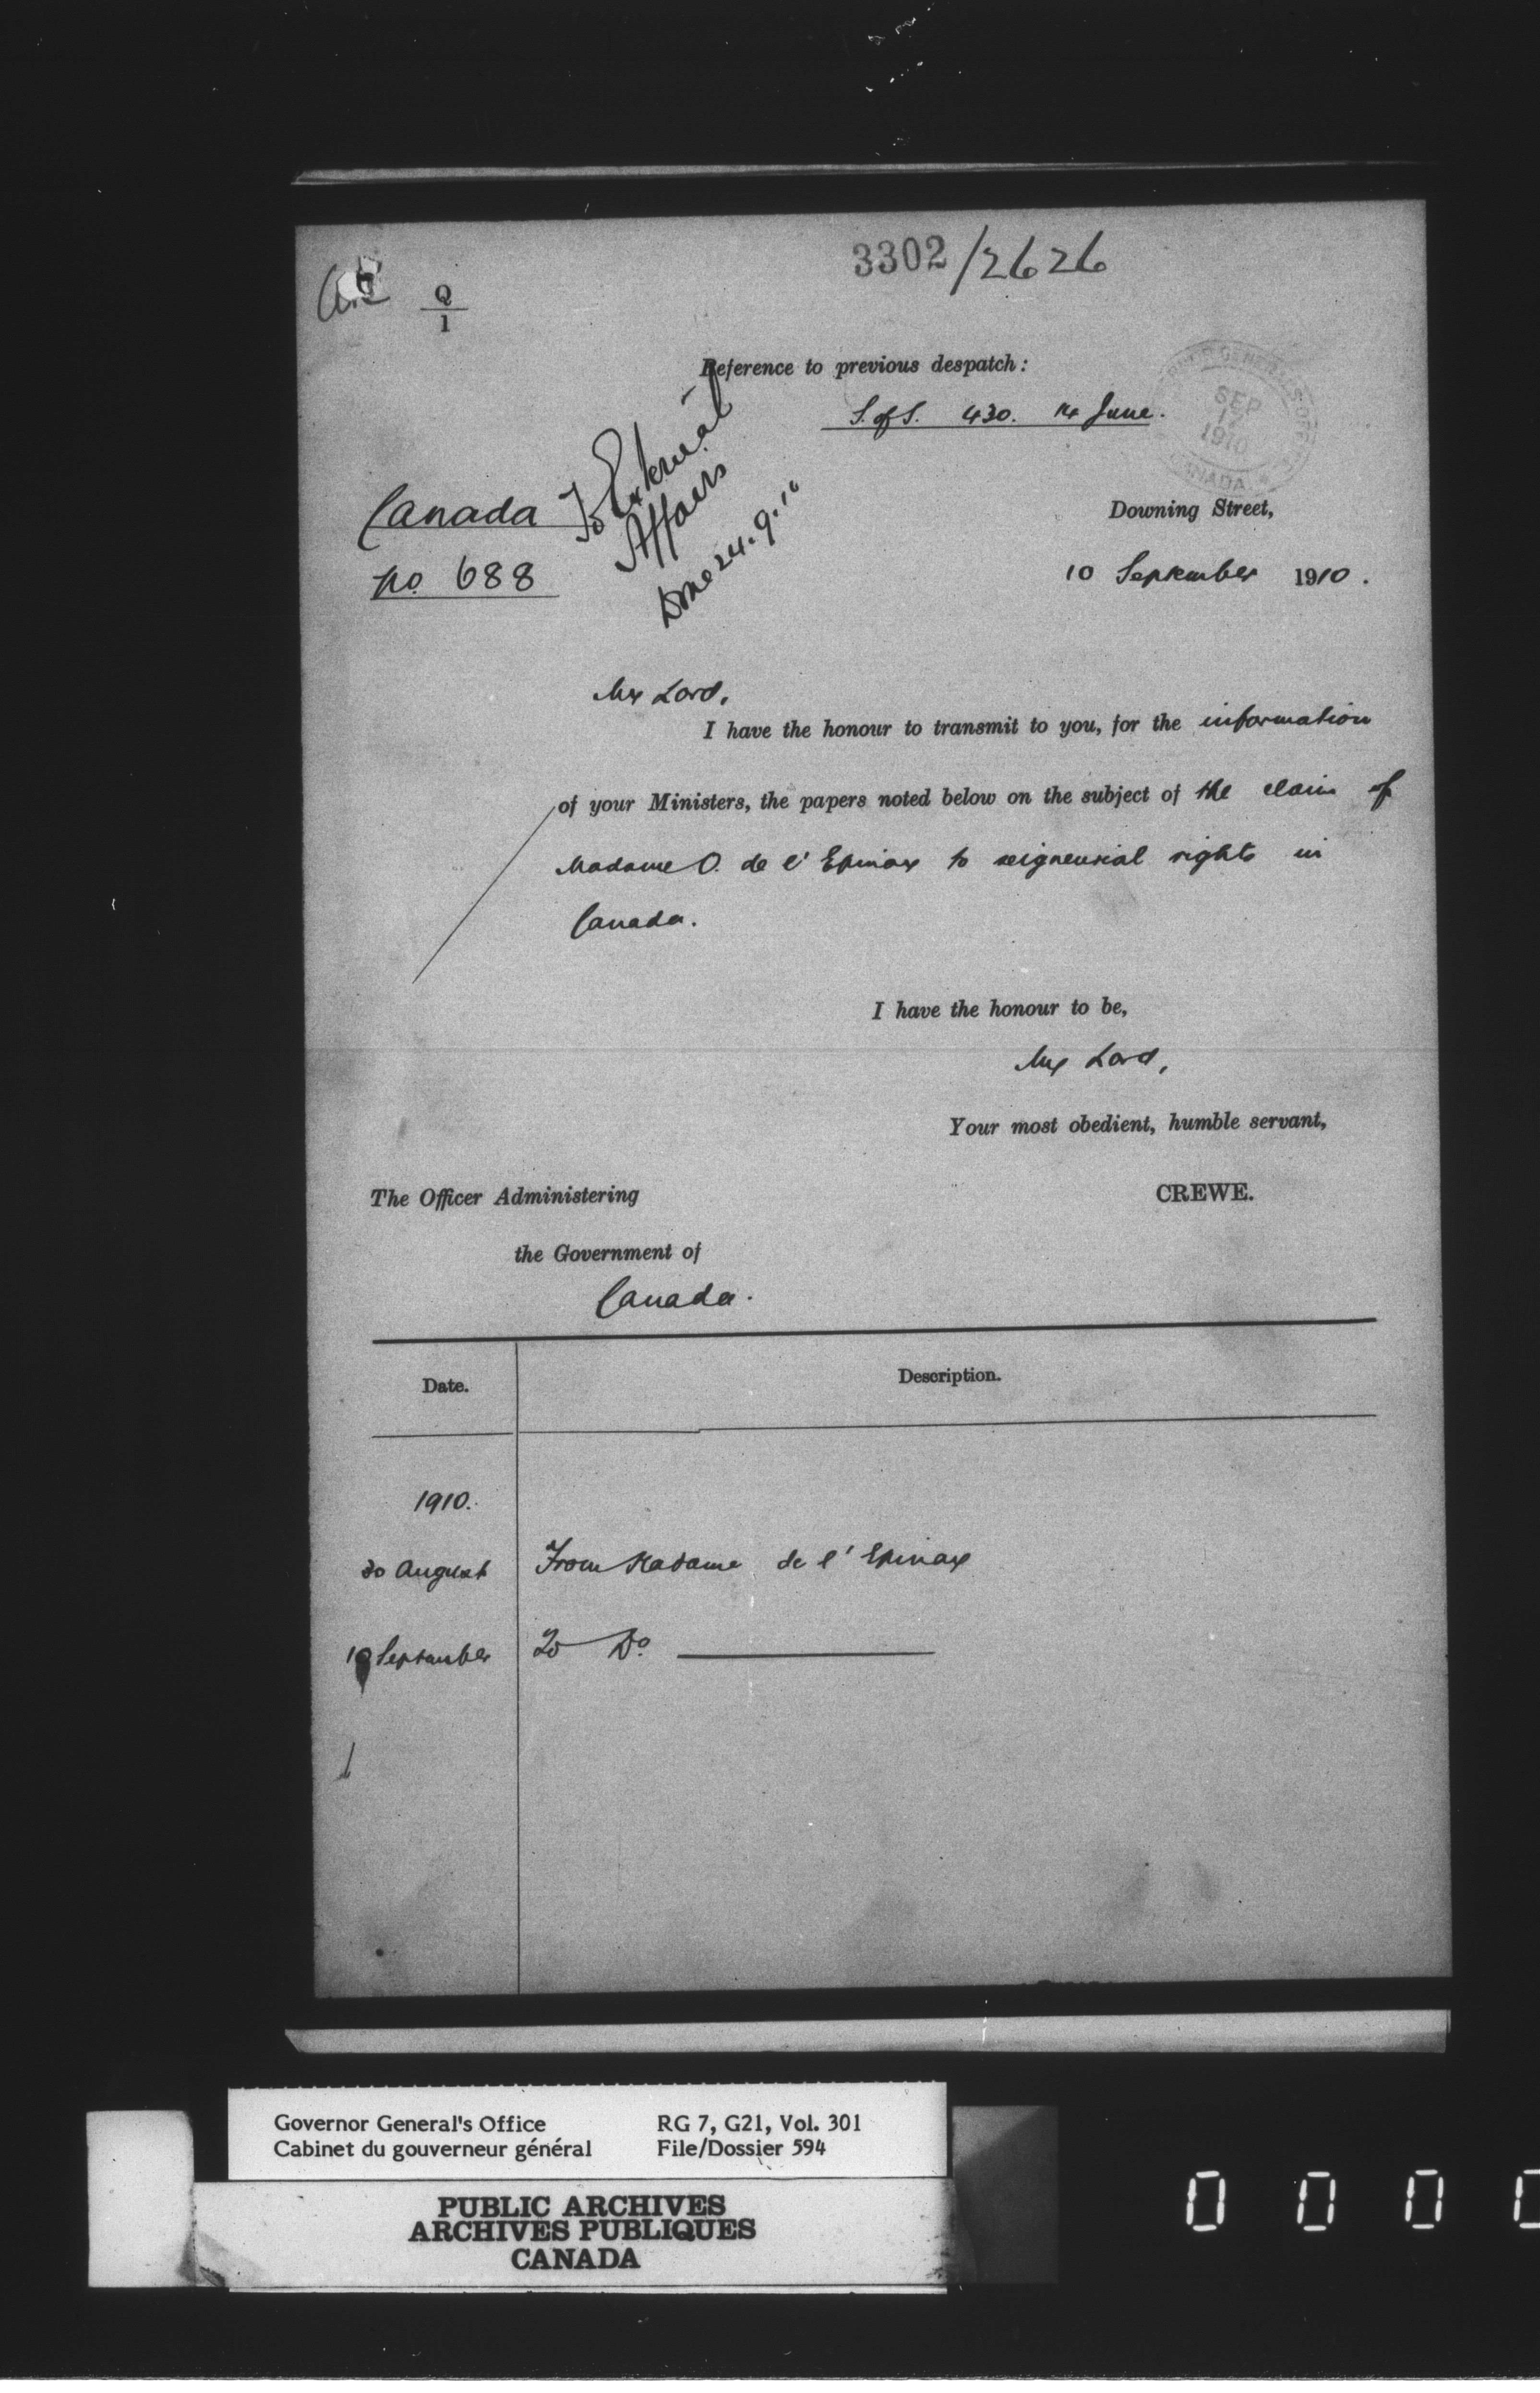 3302/2626
Q
1
Reference to previous despatch:
S. of S. 430. 14 June.
GENERAL'S OFFICE
SEP
1910
CANADA
Canada
No. 688
To External
Affairs
Done 24.9.10
Downing Street,
10 September 1910.
My Lord,
I have the honour to transmit to you, for the information
of your Ministers, the papers noted below on the subject of the claim of
Madame O. de l'Epinay to seigneurial rights in
Canada.
I have the honour to be,
My Lord,
Your most obedient, humble servant,
The Officer Administering
CREWE.
the Government of
Canada.
Date.
Description.
1910.
30 August From Madame de l'Epinay
10 September To Do.
Governor General's Office RG 7, G21, Vol. 301
Cabinet du gouverneur général File/Dossier 594
PUBLIC ARCHIVES
ARCHIVES PUBLIQUES
CANADA
0 0 0